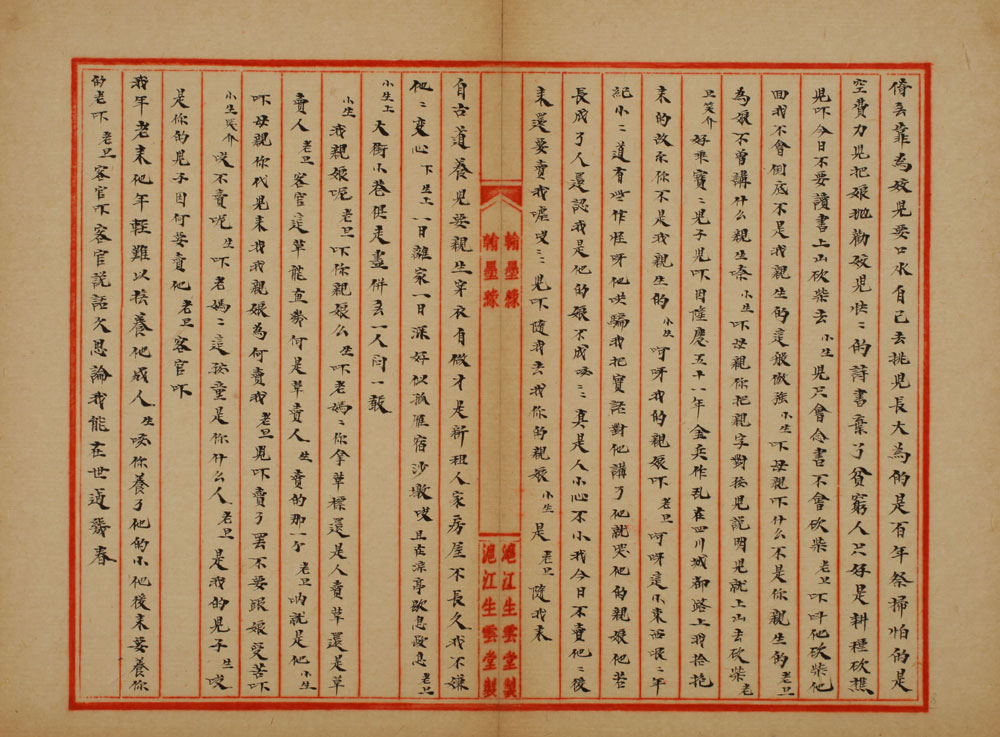 倚去靠為姣兒要口水自己去挑兒長大為的是百年祭掃怕的是
空費力兒把娘拋勸姣兒快二的詩書棄了貧窮人只好是耕種砍樵
兒吓今日不要讀書上山砍柴去 小生 兒只會念書不會砍柴 老旦 吓叫他砍柴他
面我不會倒底不是我親生的這般倔強 小生 吓母親吓什么不是你親生的 老旦
為娘不曾講什么親生嗓 小生 吓母親你把親字對孩兒說明兒就上山去砍柴 老
旦笑介 好乖寶二兒子兒吓因隆慶五十一年金兵作乱在四川城都路上我拾抱
來的故示你不是我親生的 小生 呵呀我的親娘吓 老旦 呵呀這小東西哏二年
紀小二道有些作怪呀他哄騙我把實話對他講了他就哭他的親娘他若
長成了人還認我是他的娘不成咳二真是人小心不小我今日不賣他二後
來還要賣我嚱哎三兒吓隨我去找你的親娘 小生 是 老旦 隨我來
翰墨緣
翰墨緣
滬江生雲堂製
滬江生雲堂製
自古道養兒要親生穿衣有做才是新租人家房屋不長久我不嫌
他二变心 下 生上 一日離家一日深好似孤雁宿沙墩哎且在涼亭歇息歇息 老旦
小生上 大街小巷俱走盡併乏一人问一敢
小生 我親娘呢 老旦 吓你親娘么 生 吓老媽二你拿草標還是人賣草還是草
賣人 老旦 客官這草能直幾何是草賣人 生 賣的那一个 老旦 吶就是他 小生
吓母親你代兒來找我親娘為何賣我 老旦 兒吓賣了罢不要跟娘受苦吓
小生哭介 哎不賣呢 生 吓老媽二這孩童是你什么人 老旦 是我的兒子 生 哎
是你的兒子因何要賣他 老旦 客官吓
我年老來他年輕難以撫養他成人 生 咳你養了他的小他後來要養你
的老吓 老旦 客官吓客官説話欠思論我能在世過幾春